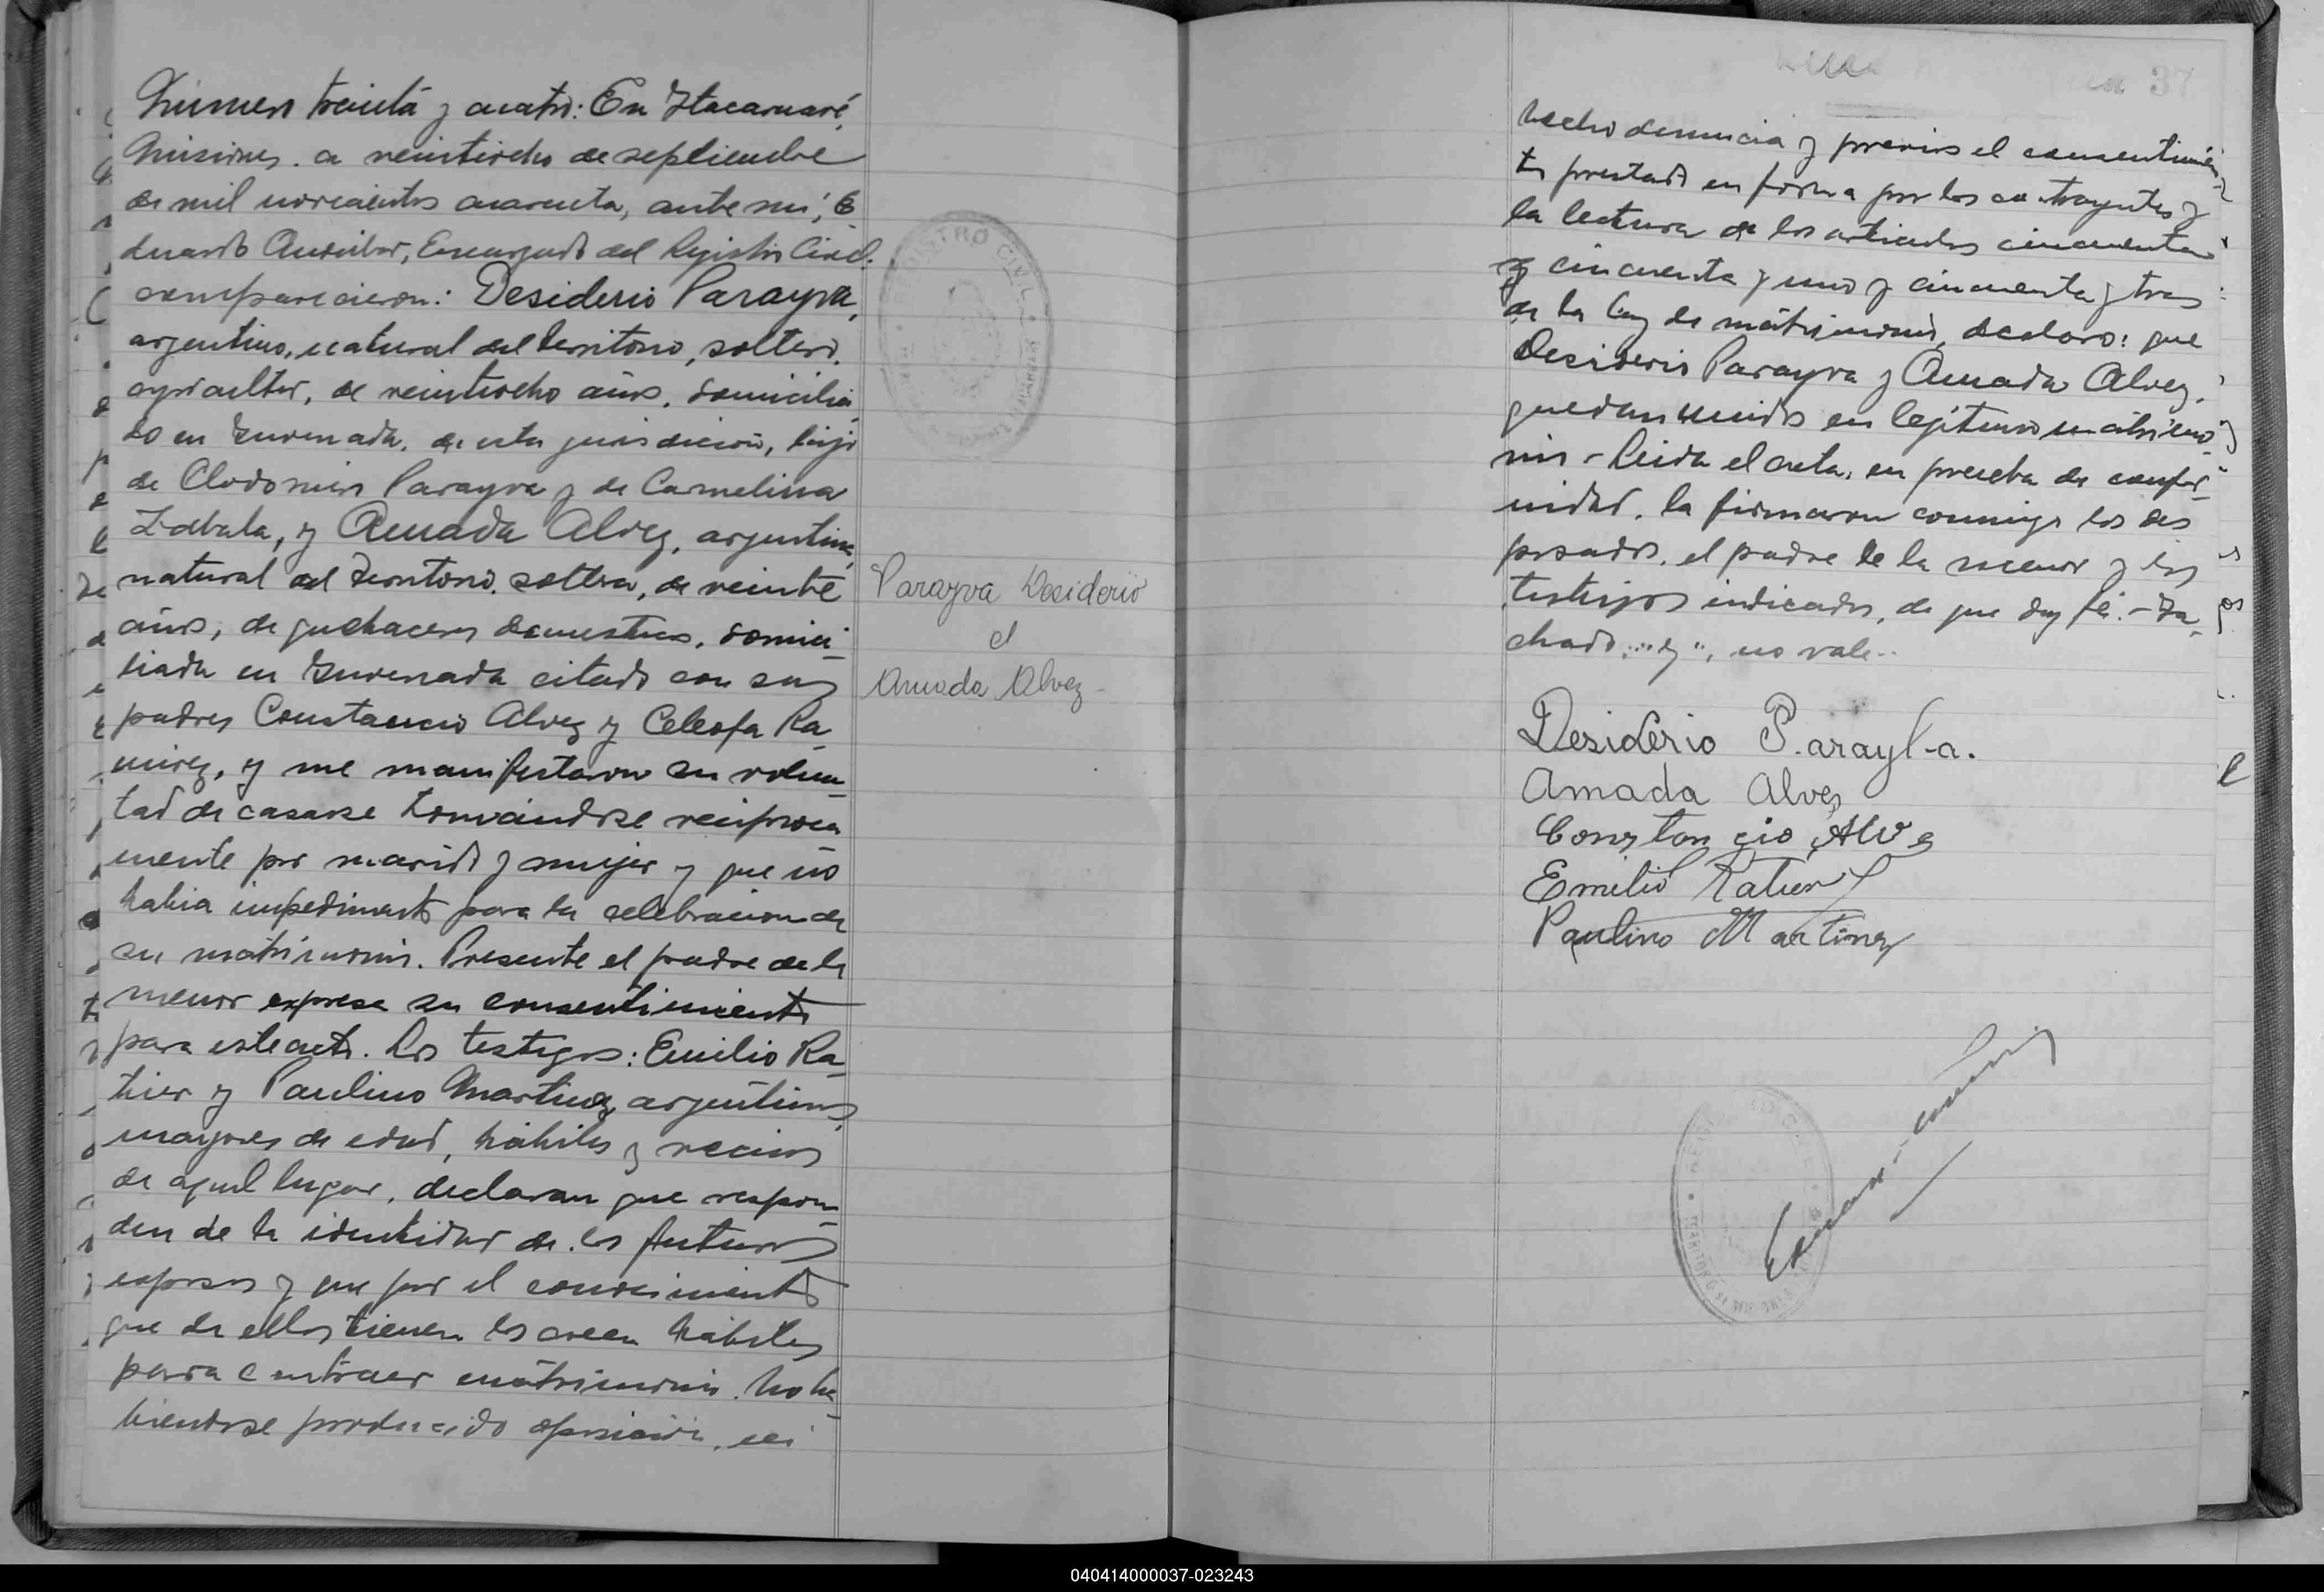 Número treinta y cuatro: En Itacaruaré,
Misiones, a veintiocho de septiembre
de mil novecientos cuarenta, ante mí, E
duardo, Encargado del Registro Civil,
comparecieron: Desiderio Parayva,
argentino, natural del territorio, soltero,
agricultor, de veintiocho años, domicilia
do en, de esta jurisdicción, hijo
de Clodomiro Parayva y de Carmelina
Zabala, y Amada Alvez, argentina,
natural del territorio, soltera, de veinte
años, de quehaceres domesticos, domici-
liada en citado con sus
padres Constancio Alvez y Celeofa Ra-
mirez, y me manifestaron su volun-
tad de casarse tomándose reciproca
mente por marido y mujer y que no
habia impedimento para la celebracion de
su matrimonio. Presente el padre de la
menor expresa su consentimiento
para este acto. Los testigos: Emilio Ra-
tier y Paulino Martinez, argentinos,
mayores de edad, hábiles y vecinos
de aquel lugar, declaran que respon-
den de la identidad de los futuros
esposos y que por el conocimiento
que de ellos tienen los creen hábiles
para contraer matrimonio. No ha-
biendose producido oposición, ni
Parayva Desiderio
c/
Amada Alvez-
REGISTRO CIVIL
37
hecho denuncia y previos el consentimien-
to prestado en forma por los contrayentes y
la lectura de los articulos cincuenta
y cincuenta y uno y cincuenta y tres
de la ley de matrimonio, declaro: que
Desiderio Parayva y Amada Alvez,
quedan unidos en legitimo matrimo-
nio.- Leida el acta, en prueba de confor-
midad, la firmaron conmigo los des
posados, el padre de la menor y los
testigos indicados, de que doy fé.- Ta-
chado: "y", no vale.-
Desiderio P.arayl-a.
Amada Alves
Constan cio Alvs
Emilio Ratier
Paulino Martinez
040414000037-023243